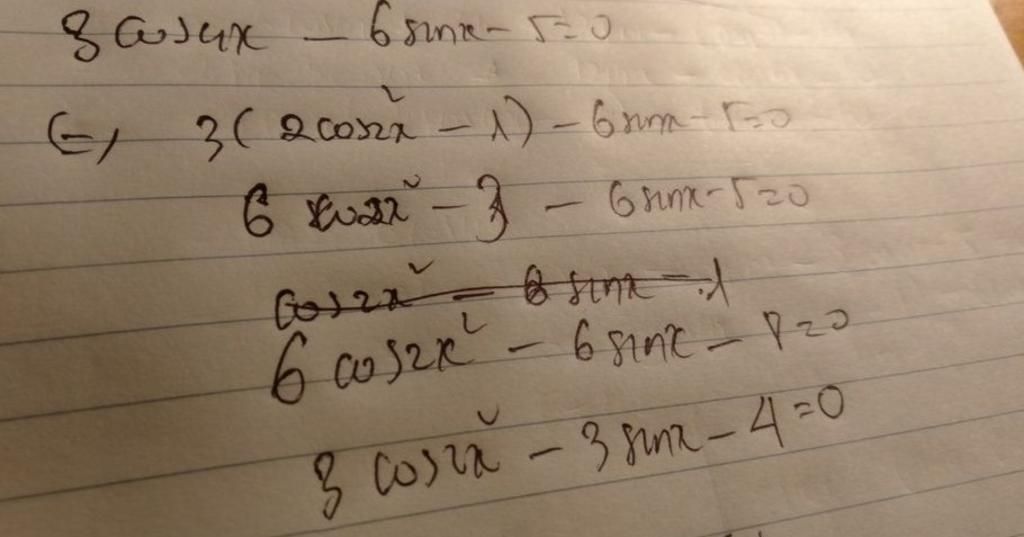 3 cos4x - 6 sinx - 5 = 0
(=) 3(2cos2x² - 1) - 6 sinx - 5 = 0
6 cos2x² - 3 - 6 sinx - 5 = 0
cos2x² - 6 sinx - 1
6 cos2x² - 6 sinx - 8 = 0
3 cos2x² - 3 sinx - 4 = 0